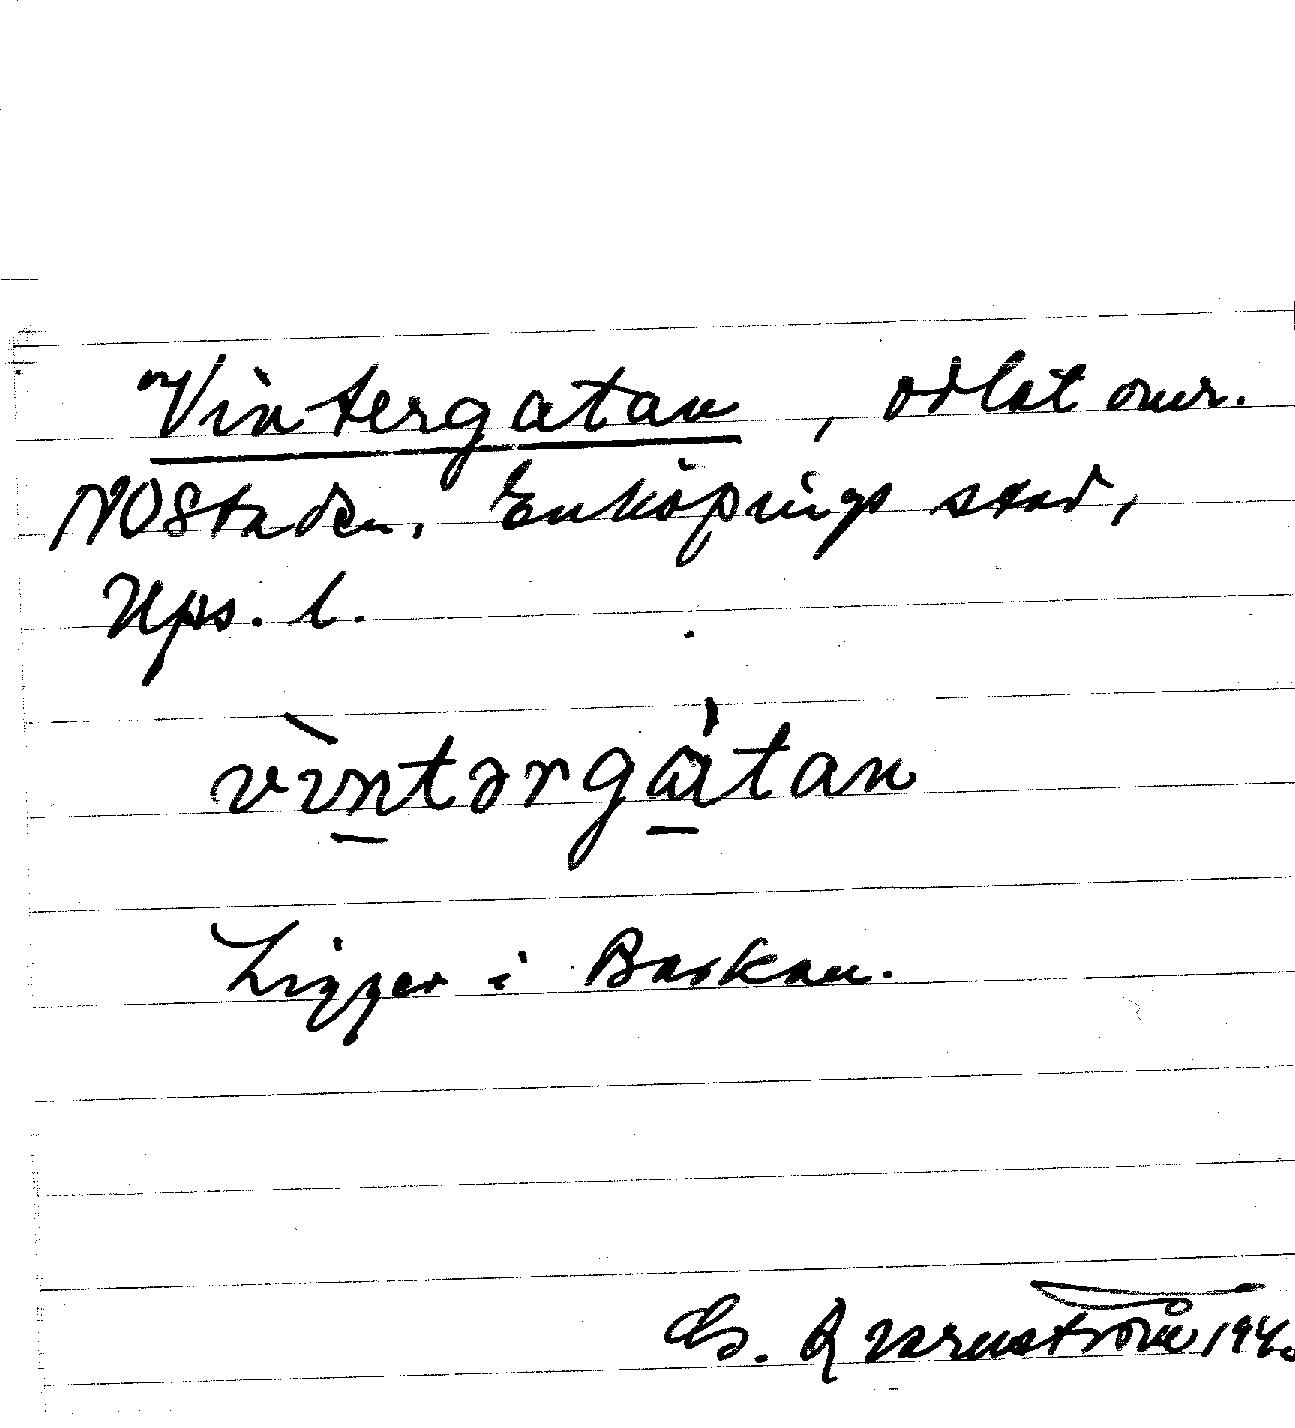 Vintergatan, odlat omr.
NO Staden. Enköpings stad,
Ups. l.
vìntərgátan
Ligger i Baskan.
G. Qvarnström 1940